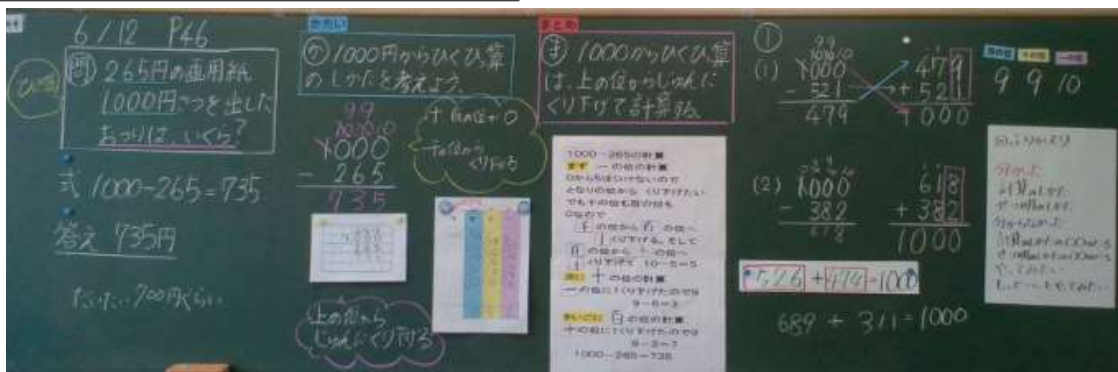 6/12 P46
問 265円の画用紙
1000円さつを出した
おつりは、いくら?
式 1000-265=735
答え 735円
だいたい700円ぐらい
かだい
1000円からひくひき算
のしかたを考えよう。
9 9
10 10 10
1000
- 265
735
十、百の位が0
千の位から
くり下げる
上の位から
じゅんにくり下げる
まとめ
ま 1000からひくひき算
は、上の位からじゅんに
くり下げて計算する。
1000-265の計算
まず 一の位の計算
0から5はひけないので
となりの位から くり下げたい
でも十の位も百の位も
0なので
千の位から百の位へ
1くり下げる。そして
百の位から十の位へ
1くり下げて 10-5=5
次に 十の位の計算
一の位に1くり下げたので9
9-6=3
さいごに 百の位の計算
十の位に1くり下げたので9
9-2=7
1000-265=735
①
(1)
9 9
10 10 10
1000
- 521
479
479
+ 521
1000
百の位 十の位 一の位
9 9 10
(2)
1000
- 382
618
618
+ 382
1000
526+474=1000
689+311=1000